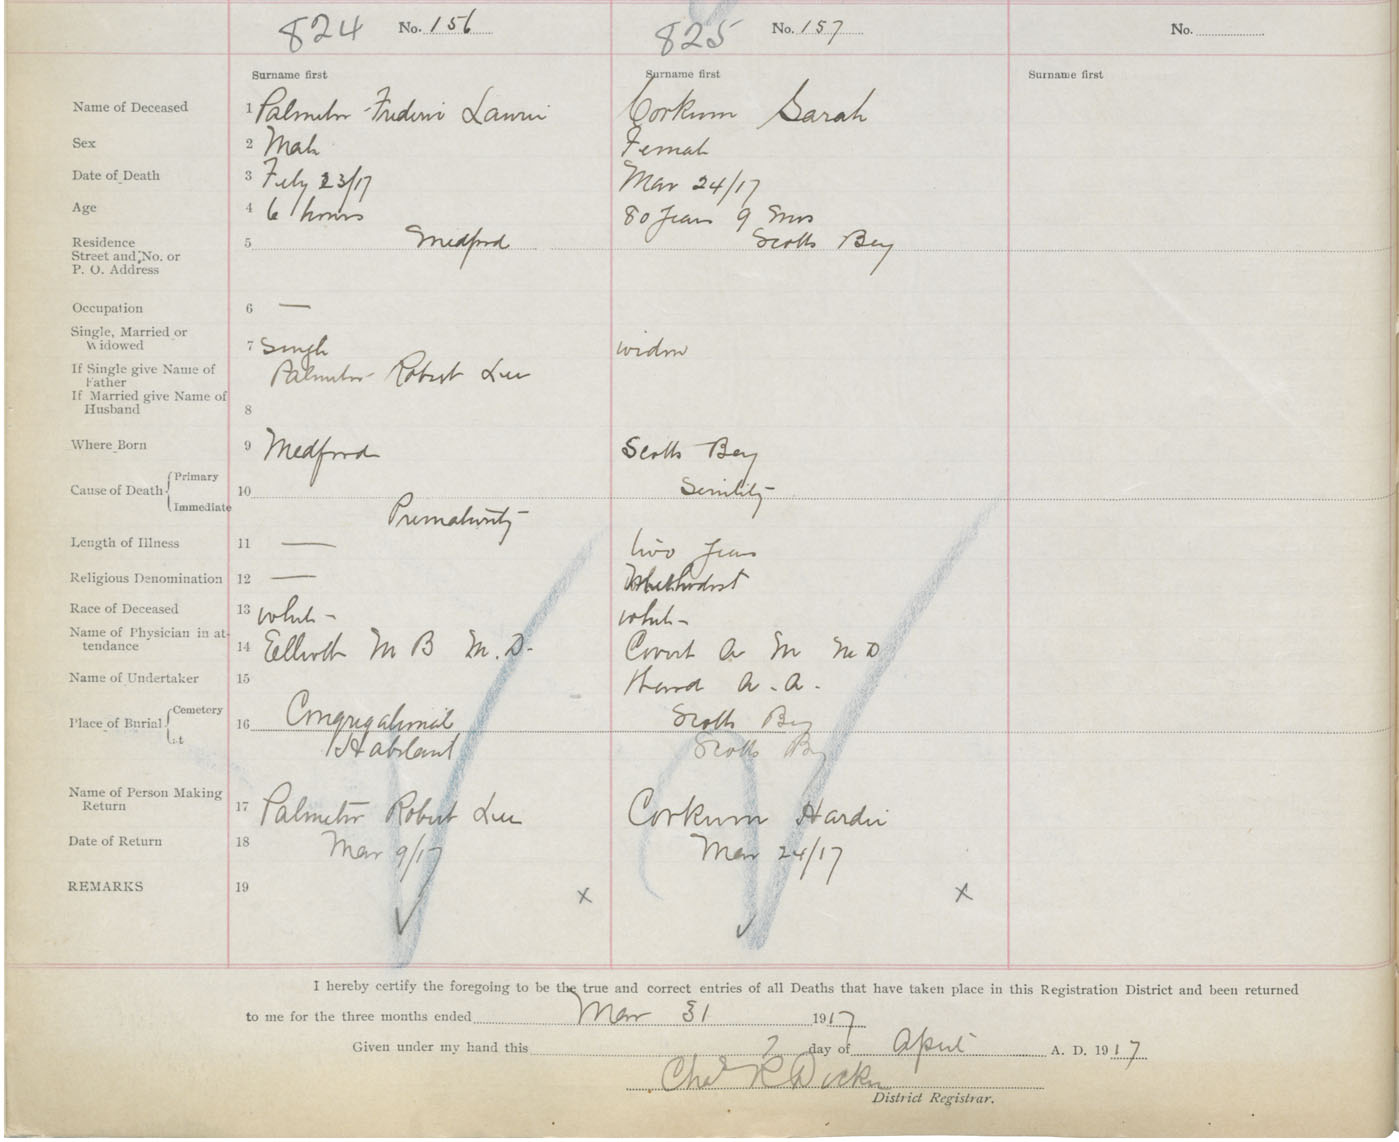 824 No. 156 825 No. 157 No.
Surname first Surname first Surname first
Name of Deceased 1 Palmeter Frederic Laurie Corkum Sarah
Sex 2 Male Female
Date of Death 3 Feby 23/17 Mar 24/17
Age 4 6 hours 80 years 9 mos
Residence 5 Medford Scotts Bay
Street and No. or
P. O. Address
Occupation 6 —
Single, Married or
Widowed 7 Single widow
If Single give Name of
Father Palmeter Robert Lee
If Married give Name of
Husband 8
Where Born 9 Medford Scotts Bay
Cause of Death Primary 10 Senility
Immediate Prematurity
Length of Illness 11 — two years
Religious Denomination 12 — Methodist
Race of Deceased 13 white white
Name of Physician in at-
tendance 14 Elliott M B M.D. Covert A M M D
Name of Undertaker 15 A. A.
Place of Burial Cemetery 16 Congregational Scotts Bay
at Habitant Scotts Bay
Name of Person Making
Return 17 Palmeter Robert Lee Corkum Hardie
Date of Return 18 Mar 9/17 Mar 24/17
REMARKS 19 x x
I hereby certify the foregoing to be the true and correct entries of all Deaths that have taken place in this Registration District and been returned
to me for the three months ended Mar 31 1917
Given under my hand this 7 day of April A. D. 1917
Chas R
District Registrar.